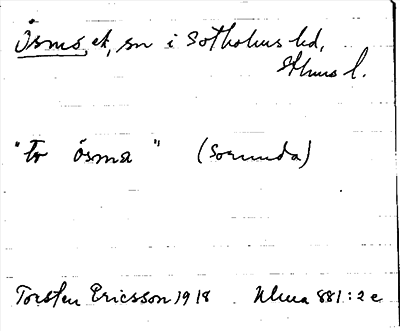 Ösmo, et, sn i Sotholms hd,
Sthms l.
"to ösma" (Sorunda)
Torsten Ericsson 1918 Ulma 881:2 c